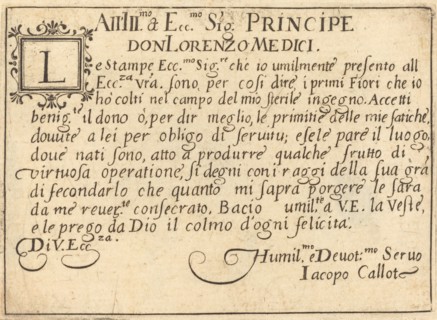 All Ill.mo & Ecc.mo Sig. PRINCIPE
DON LORENZO MEDICI.
Le Stampe Ecc.mo Sig.re che io umilmente presento all
Ecc.za vra. sono, per cosi dire, i primi Fiori che io
hò colti nel campo del mio sterile ingegno. Accetti
benig.te il dono ò, per dir meglio, le primitie delle mie fatiche,
douute a lei per obligo di seruitu; e se le pare il luogo,
doue nati sono, atto a produrre qualche frutto di
virtuosa operatione, si degni con i raggi della sua grã.
di fecondarlo che quanto mi saprà porgere le sara
da me reuer.te consecrato, Bacio umil.te a V.E. la Veste,
e le prego da Dio il colmo d'ogni felicita.
Di V. Ecc.za.
Humil.me e Deuot.mo Seruo
Iacopo Callot